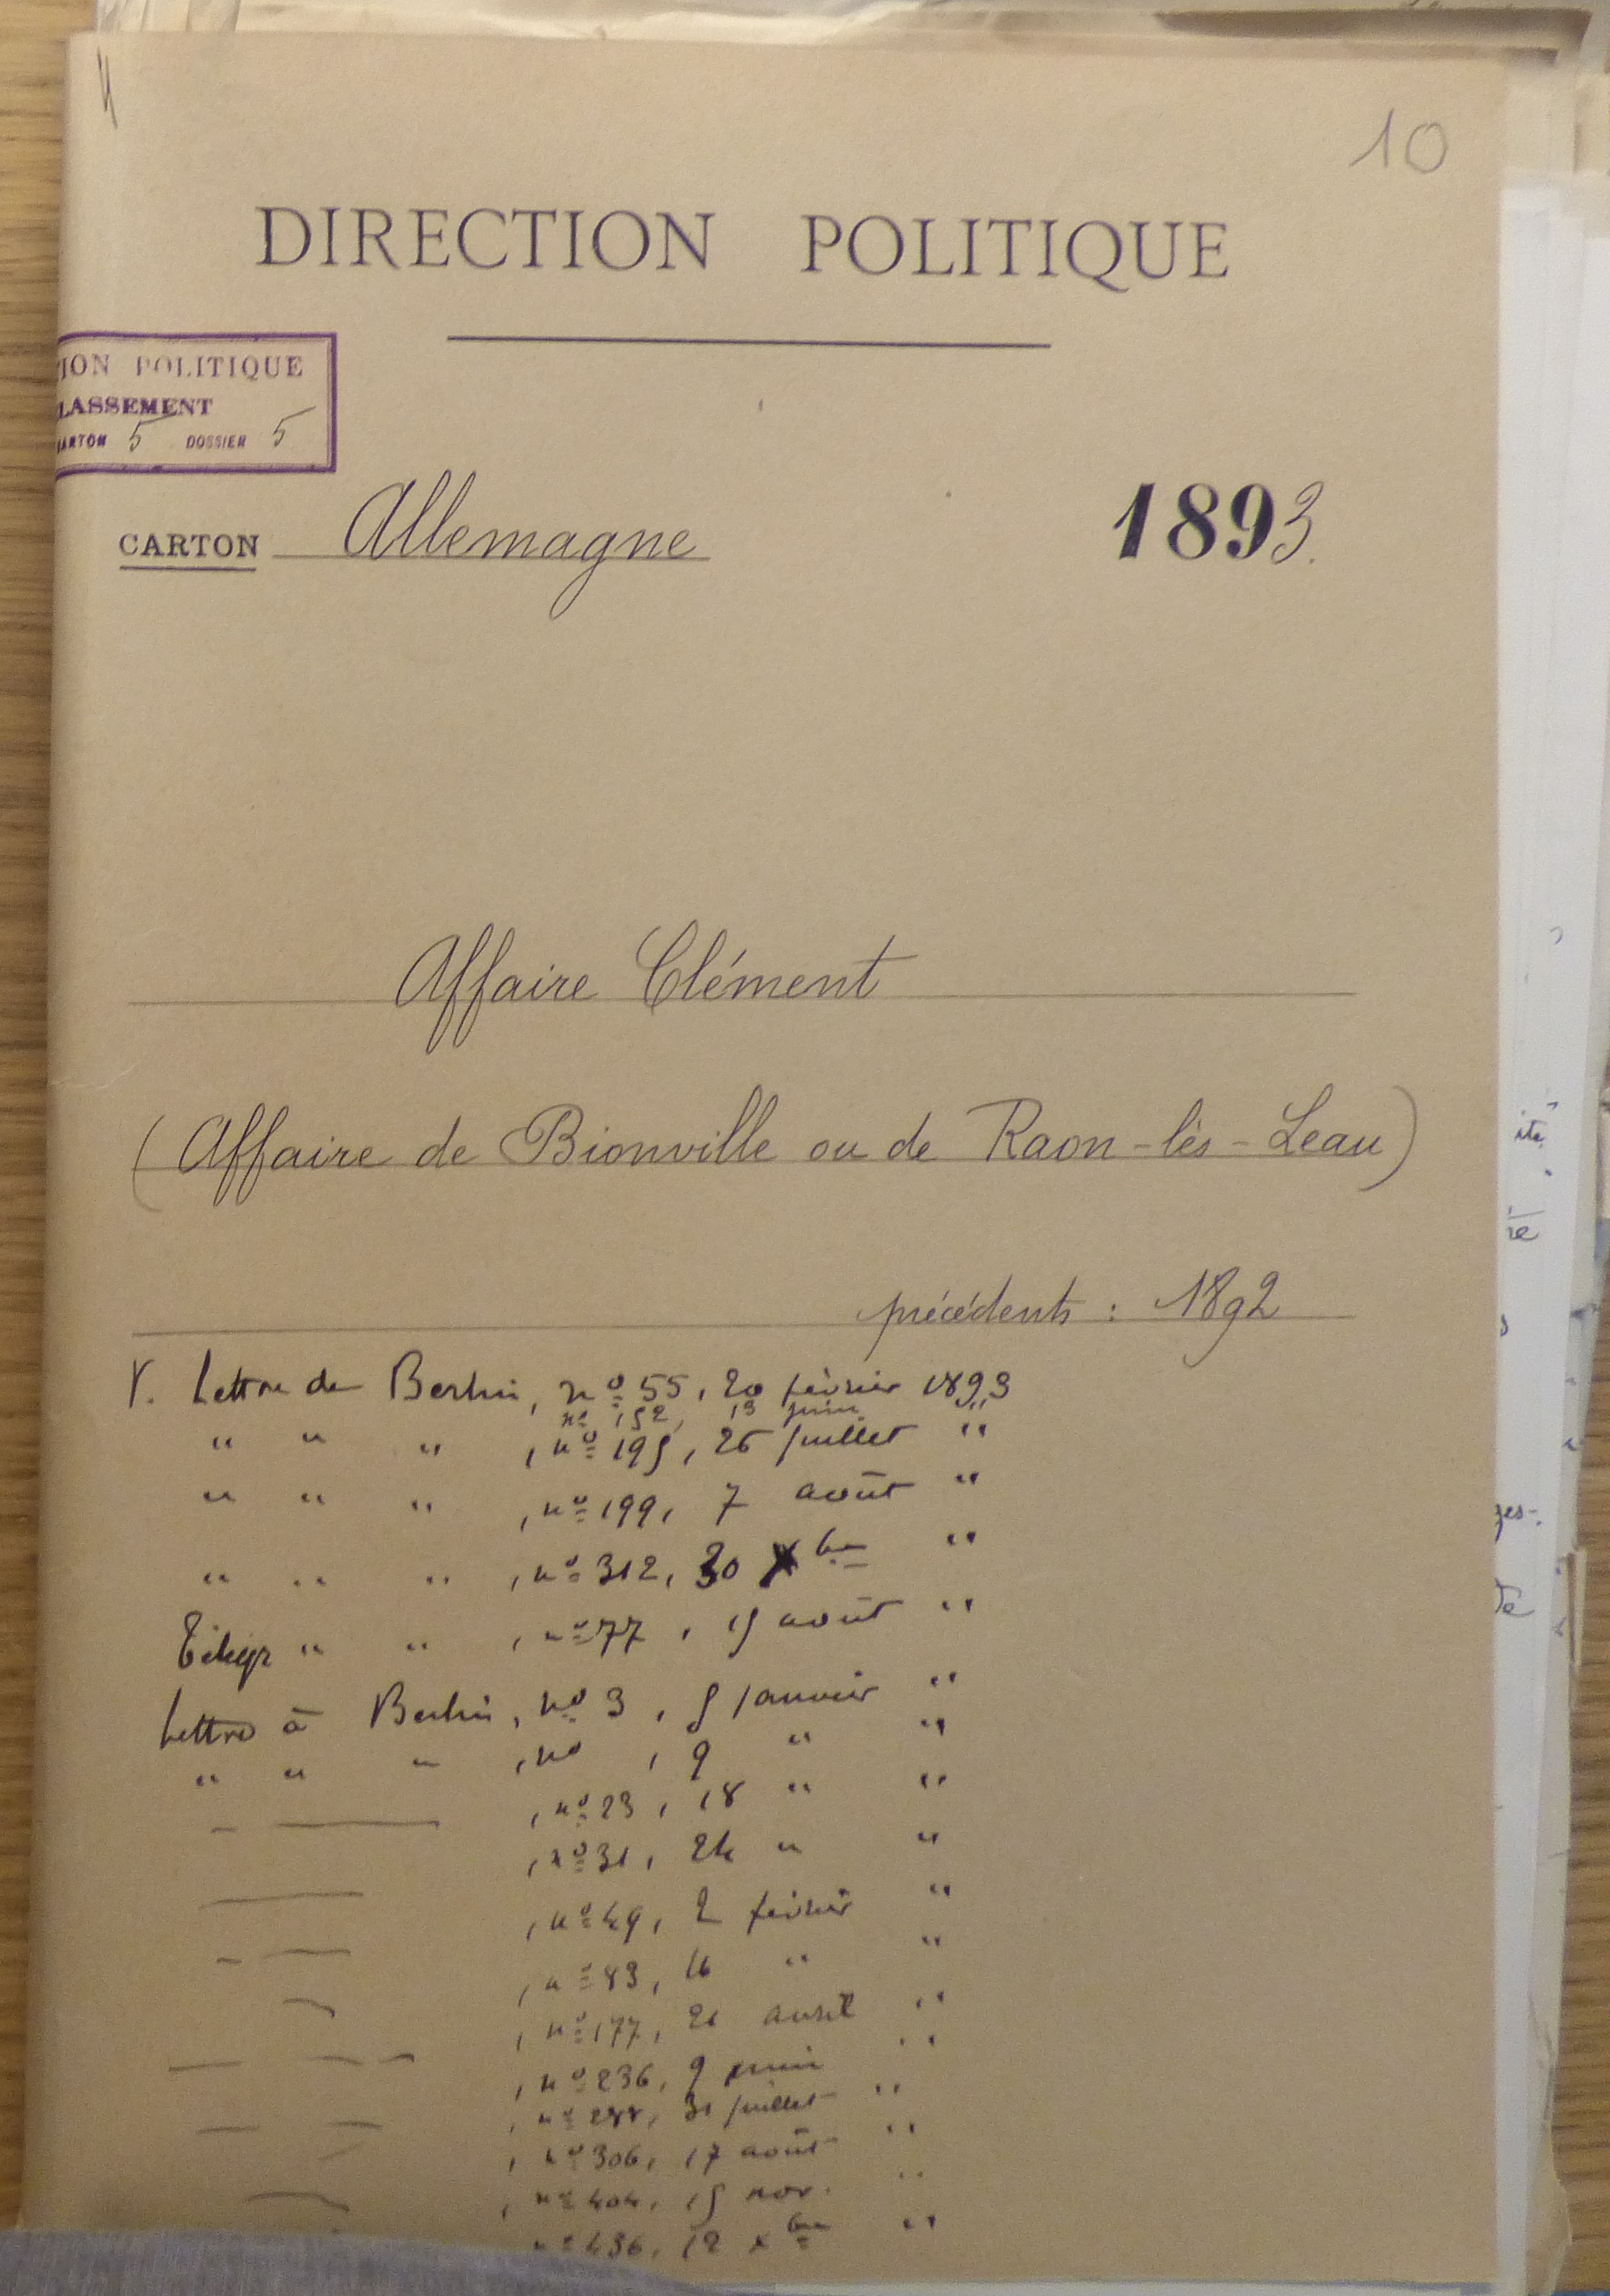 10
DIRECTION POLITIQUE
ION POLITIQUE
LASSEMENT
ARTON 5 DOSSIER 5
CARTON Allemagne 1893.
Affaire Clément
(Affaire de Bionville ou de Raon-lès-Leau)
précédents : 1892
V. Lettre de Berlin, nº 55, 20 février 1893
nº 152, 13 juin "
" " " , nº 195, 26 juillet "
" " " , nº 199, 7 août "
" " " , nº 312, 30 Xbre "
Télégr " " , nº 77, 15 août "
Lettre à Berlin, nº 3, 5 janvier "
" " " , nº , 9 " "
, nº 23, 18 " "
, nº 31, 24 " "
, nº 49, 2 février "
, nº 83, 16 " "
, nº 177, 21 avril "
, nº 236, 9 juin "
, nº 288, 31 juillet "
, nº 306, 17 août "
, nº 404, 15 nov. "
nº 436, 12 xbre "
ité,
ré